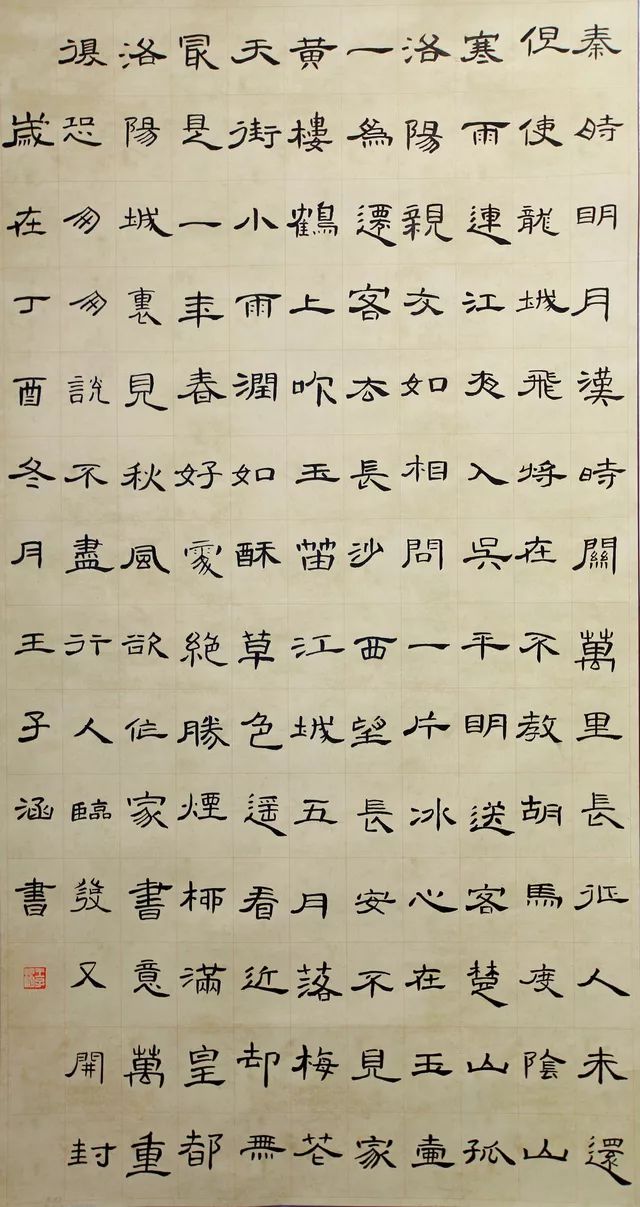 秦時明月漢時關萬里長征人未還
但使龍城飛將在不教胡馬度陰山
寒雨連江夜入吳平明送客楚山孤
洛陽親友如相問一片冰心在玉壺
一為遷客去長沙西望長安不見家
黃樓鶴上吹玉笛江城五月落梅花
天街小雨潤如酥草色遥看近却無
冣是一年春好處絶勝煙栁滿皇都
洛陽城裏見秋風欲作家書意萬重
復恐匆匆說不盡行人臨發又開封
歲在丁酉冬月王子涵書